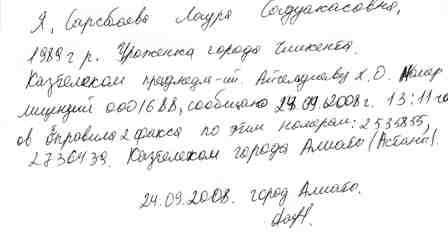 Я, Сарсбаева Лаура Сагдуакасовна,
1989 г р. Уроженка города Чимкента.
Казтелеком
лицензий 0001688, сообщаю 24.09.2008г. 13:11 ча
ов отправила 2 факса по этим номерам: 2535835,
2736439. Казтелеком города Алматы (Астана).
24.09.2008. город Алматы.